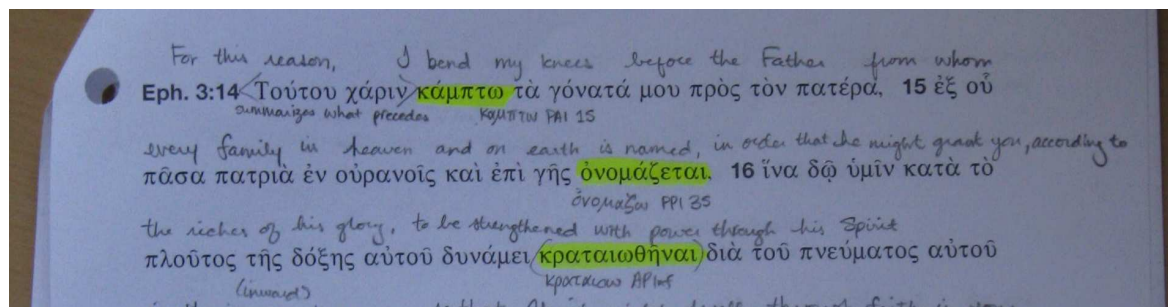 For this reason, I bend my knees before the Father from whom
Eph. 3:14 Τούτου χάριν κάμπτω τὰ γόνατά μου πρὸς τὸν πατέρα, 15 ἐξ οὗ
summarizes what precedes καμπτω PAI 1S
every family in heaven and on earth is named, in order that he might grant you, according to
πᾶσα πατριὰ ἐν οὐρανοῖς καὶ ἐπὶ γῆς ὀνομάζεται, 16 ἵνα δῷ ὑμῖν κατὰ τὸ
ὀνομαζω PPI 3S
the riches of his glory, to be strengthened with power through his Spirit
πλοῦτος τῆς δόξης αὐτοῦ δυνάμει κραταιωθῆναι διὰ τοῦ πνεύματος αὐτοῦ
(inward) κραταιοω APInf